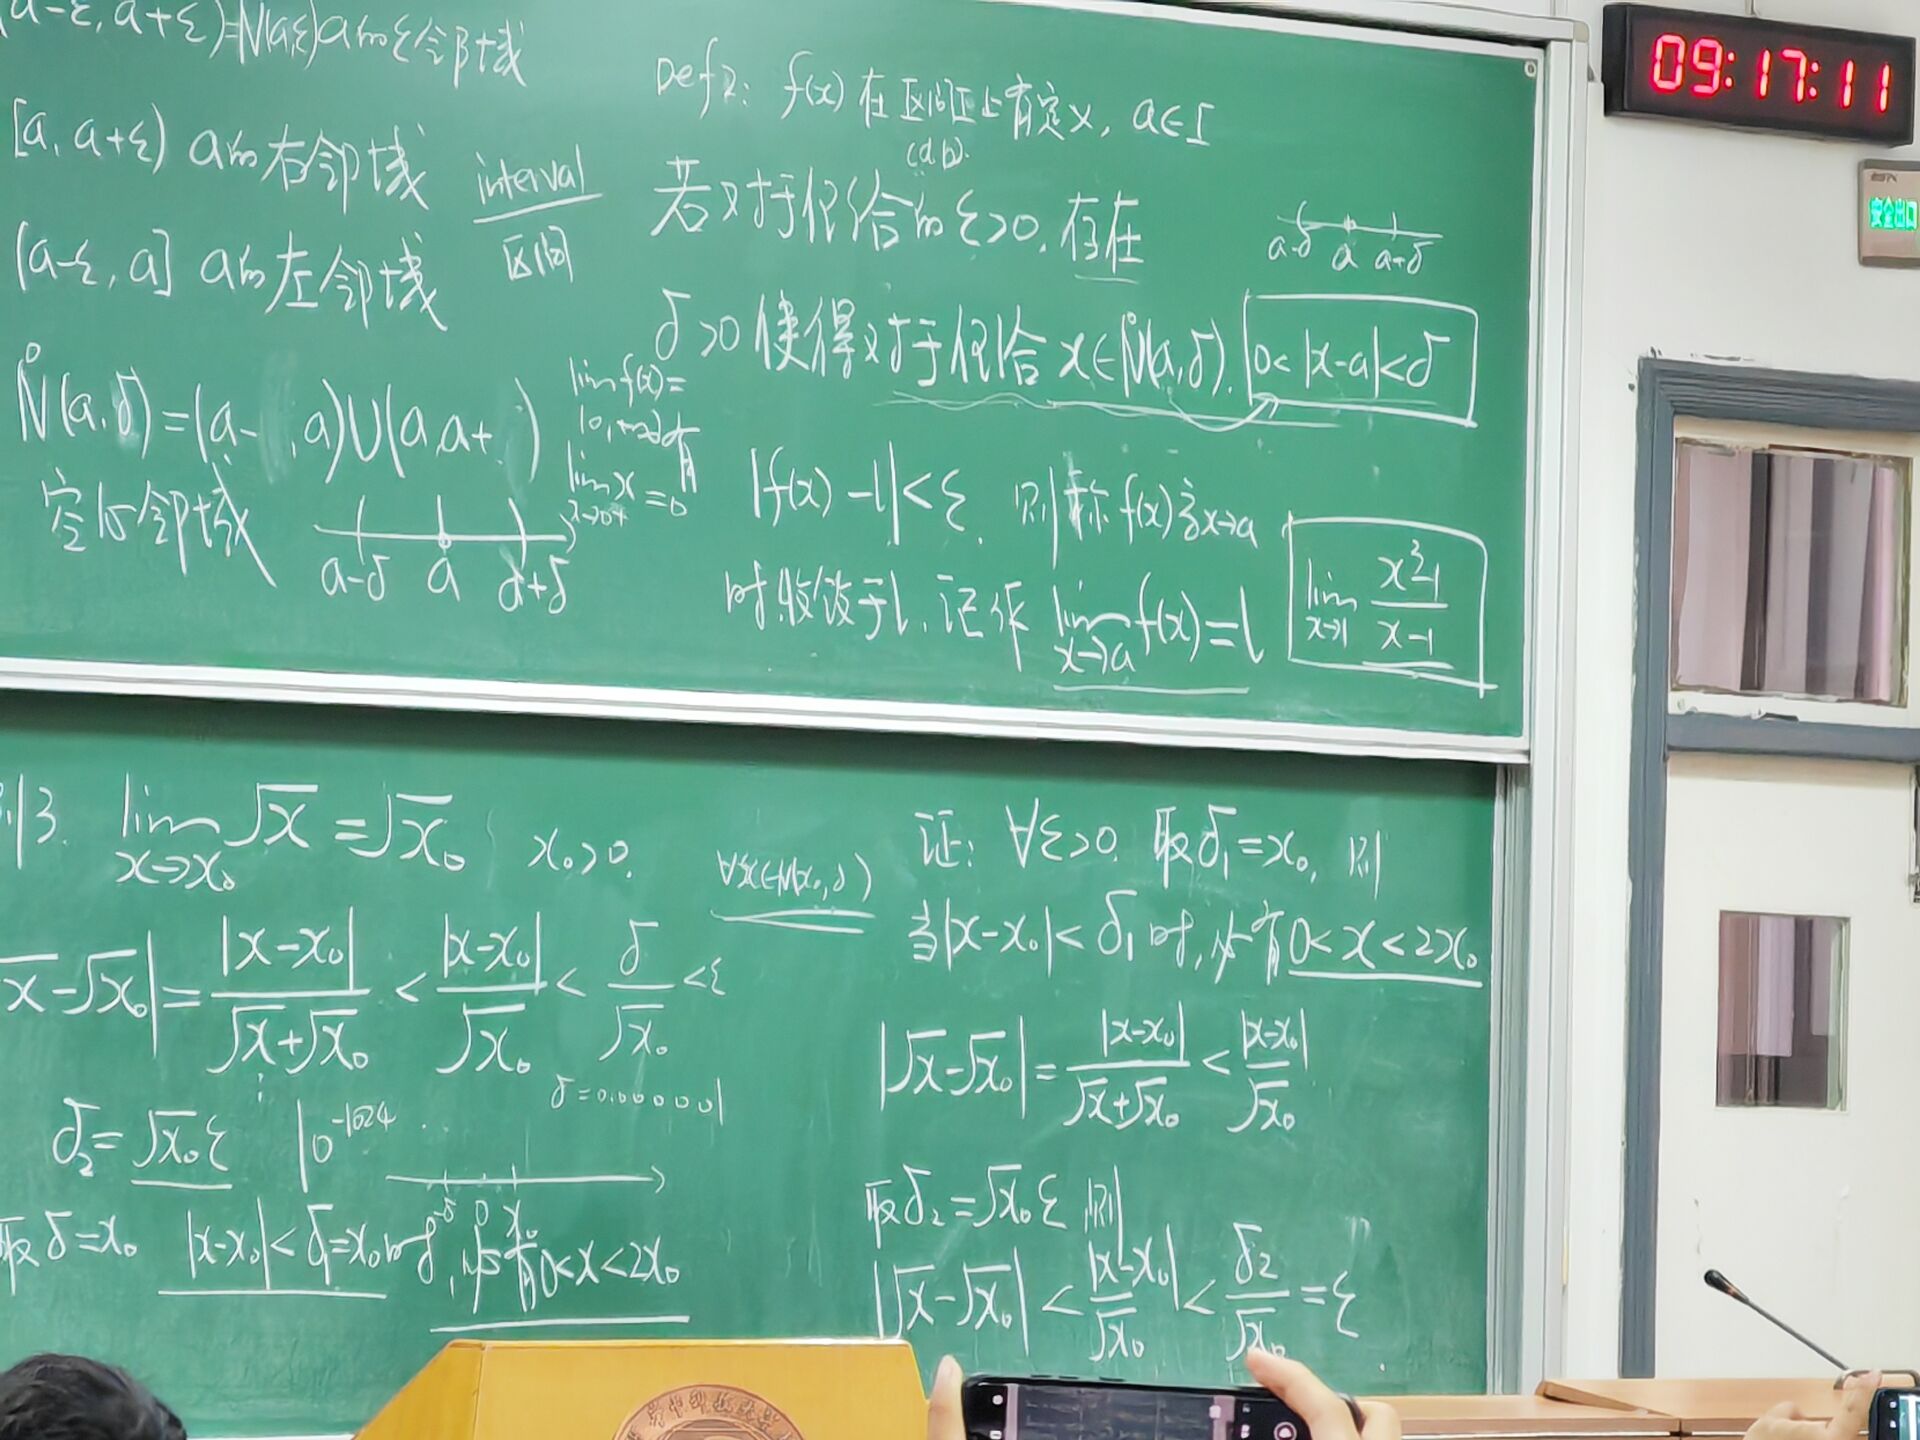 (a-ε, a+ε)=N(a,ε) a的ε邻域
[a, a+ε) a的右邻域
(a-ε, a] a的左邻域
interval
区间
N̊(a,δ)=(a- ,a)∪(a,a+ )
空心邻域
a-δ a a+δ
lim f(x)=
lim x =0
x→0+
Def2: f(x) 在区间I上有定义, a∈I
若对于任给的ε>0, 存在
a-δ a a+δ
δ>0 使得对于任给 x∈N̊(a,δ), 0<|x-a|<δ
有
|f(x)-l|<ε, 则称f(x)当x→a
时收敛于l, 记作 lim f(x)=l
x→a
lim x²-1
x→1 x-1
例3. lim √x = √x₀ x₀>0.
x→x₀
∀x∈N(x₀,δ)
|√x-√x₀| = |x-x₀|/(√x+√x₀) < |x-x₀|/√x₀ < δ/√x₀ <ε
δ=0.0000001
δ₂=√x₀ε 10⁻¹⁰²⁴
-δ 0 x₀
取δ=x₀ |x-x₀|<δ₁=x₀时, 必有0<x<2x₀
证: ∀ε>0, 取δ₁=x₀, 则
当|x-x₀|<δ₁时, 必有0<x<2x₀
|√x-√x₀| = |x-x₀|/(√x+√x₀) < |x-x₀|/√x₀
取δ₂=√x₀ε, 则
|√x-√x₀| < |x-x₀|/√x₀ < δ₂/√x₀ =ε
09:17:11
安全出口
华中科技大学